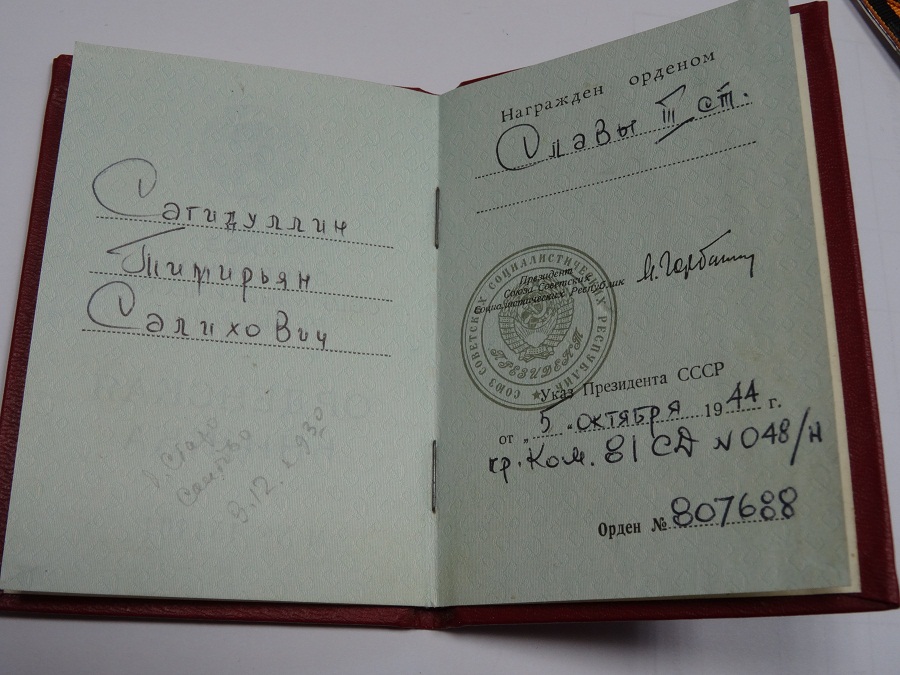 Сагидуллин
Тимирьян
Салихович
Награжден орденом
Славы III ст.
СОЮЗ СОВЕТСКИХ СОЦИАЛИСТИЧЕСКИХ РЕСПУБЛИК
ПРЕЗИДЕНТ
Президент
Союза Советских
Социалистических Республик
М.Горбачев
Указ Президента СССР
от „5" октября 1944 г.
пр. Ком. 81 СД N 048/н
Орден № 807688